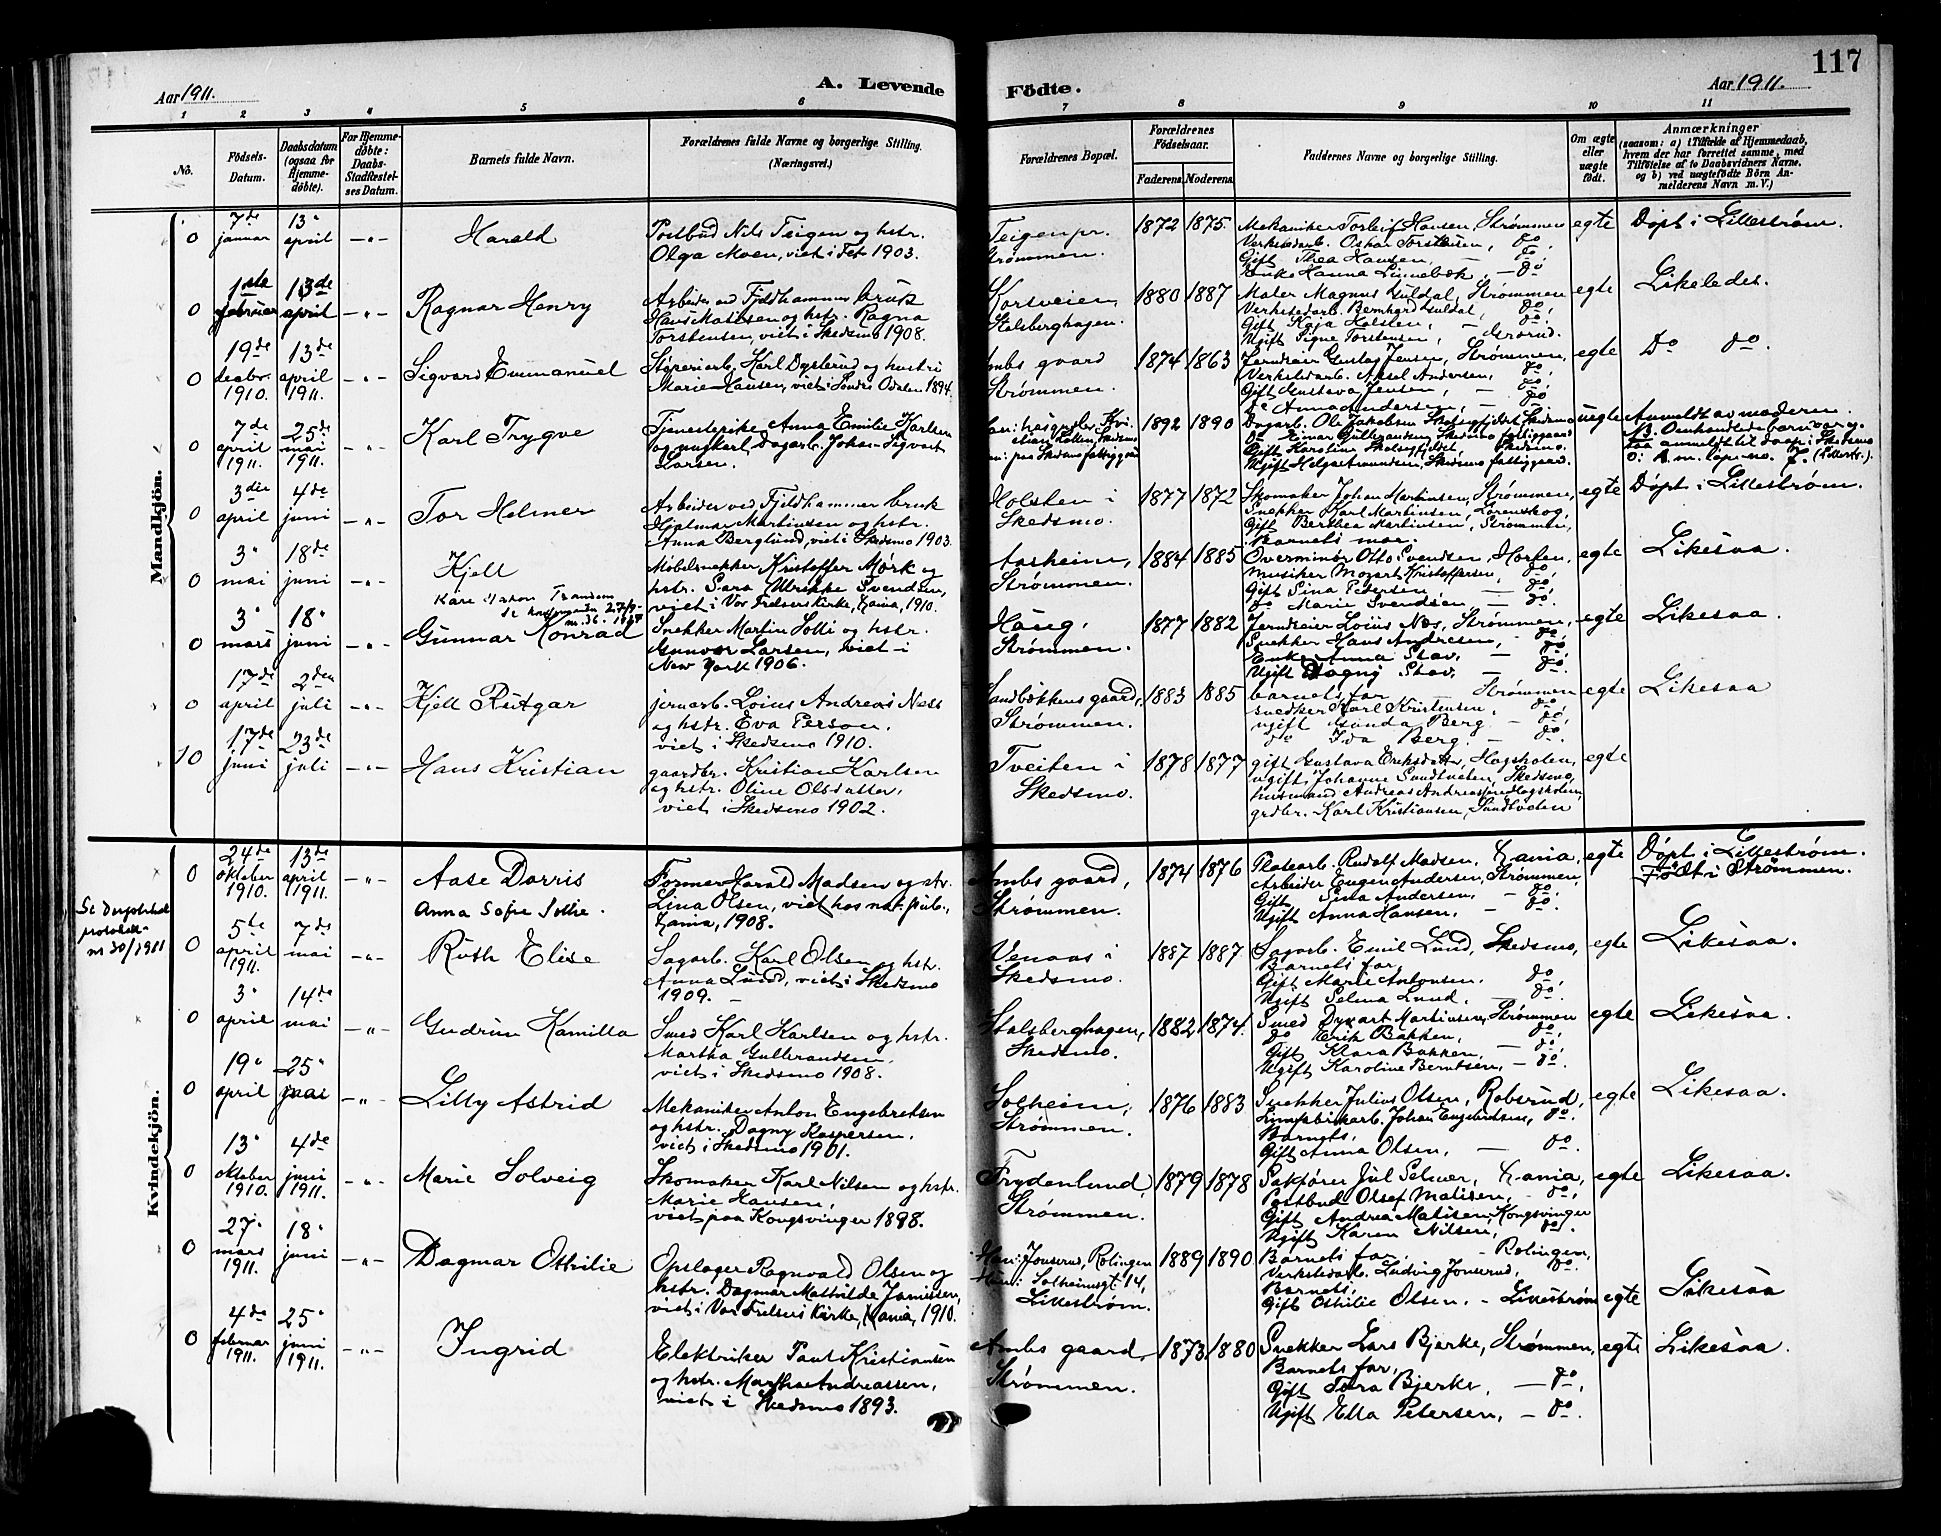 117
Aar 1911.
A. Levende Födte.
Aar 1911.
1 2 3 4 5 6 7 8 9 10 11
No.
Födsels-
Datum.
Daabsdatum
(ogsaa for
Hjemme-
döbte).
For Hjemme-
döbte:
Daabs-
Stadfæstel-
ses Datum.
Barnets fulde Navn.
Forældrenes fulde Navne og borgerlige Stilling.
(Næringsvei.)
Forældrenes Bopæl.
Forældrenes
Födselsaar.
Faderens
Moderens
Faddernes Navne og borgerlige Stilling.
Om ægte
eller
uægte
födt.
Anmærkninger
(saasom: a) i Tilfælde af Hjemmedaab,
hvem der har forrettet samme, med
Tilföielse af to Daabsvidners Navne,
og b) ved uægtefödte Börn An-
melderens Navn m. V.)
Mandkjön.
0
7de
januar
13'
april
Harald
Postbud Nils Teigen og hstr.
Olga Moen, viet i Fet 1903.
Teigen pr.
Strømmen.
1872
1875.
Mekaniker Torleif Hansen, Strømmen
Verkstedarb. Oskar Torstensen, do,
Gift Thea Hansen, — do,
Enke Hanna Linnebæk, — do
egte
Døpt i Lillestrøm.
0
1ste
februar
13de
april
Ragnar Henry
Arbeider ved Fjeldhammer bruk
Hans Matisen og hstr. Ragna
Torstensen, viet i Skedsmo 1908.
Korsveien,
Stalsberghagen.
1880
1887
Maler Magnus Guldal, Strømmen
Verkstedarb. Bernhard Guldal, do,
Gift Kaja Holsten, — do,
Ugift Signe Torstensen, Grorud.
egte
Likeledes.
0
19de
decbr.
1910.
13de
april
1911.
Sigvard Emmanuel
Støperiarb. Karl Dysterud og hustru
Marie Hansen, viet i Søndre Odalen 1894.
Ambs gaard
Strømmen.
1874
1863
Jerndreier Gustav Jensen, Strømmen,
Verkstedarb. Aksel Andersen, do,
Gift Gustava Jensen, — do
do Anna Andersen, — do
egte
Do do.
0
7de
april
1911.
25de
mai
1911.
Karl Trygve
Tjenestepike Anna Emilie Karlsen
og ungkarl, Dagarb. Johan Sigvart
Larsen.
1892
1890
Dagarb. Ole Jakobsen
do Einar Gulbrandsen, Skedsmo fattiggaard
Gift Karoline Skedsmo.
Ugift Helga Amundsen, Skedsmo fattiggaard.
uegte
Anmeldt av moderen.
0
3die
april
4de
juni
Tor Helmer
Arbeider ved Fjeldhammer bruk
Hjalmar Martinsen og hstr.
Anna Berglund, viet i Skedsmo 1903.
Holsten i
Skedsmo.
1877
1872
Skomaker Johan Martinsen, Strømmen,
Snekker Karl Martinsen, Lørenskog,
Gift Berthea Martinsen, Strømmen,
Barnets mor.
egte
Døpt i Lillestrøm.
0
3'
mai
18de
juni
Kjell
Møbelsnekker Kristoffer Mørk og
hstr. Sara Ulrikke Svendsen,
viet i Vor Frelsers Kirke, Kania, 1910.
Aasheim,
Strømmen.
1884
1885
Overminør Otto Svendsen, Horten,
Musiker Mozart Kristoffersen, do,
Gift Sina Petersen — do,
do Marie Svendsen — do,
egte
Likesaa.
0
3'
mars
18'
juni
Gunnar Konrad
Snekker Martin Solli og hstr.
Gunvor Larsen, viet i
New York 1906.
Haug,
Strømmen.
1877
1882
Jerndreier Loius Nes, Strømmen,
Snekker Hans Andresen, — do,
Enke Anna Stav, — do,
Ugift Dagny Stav, — do,
egte
Likesaa
0
17de
april
2den
juli
Kjell Rutgar
jernarb. Loius Andreas Ness
og hstr. Eva Person,
viet i Skedsmo 1910.
Sandbækkens gaard,
Strømmen.
1883
1885
barnets far — Strømmen
snedker Karl Kristensen, do,
ugift Gunda Berg — do,
do Ida Berg — do,
egte
Likesaa
10
17de
juni
23de
juli
Hans Kristian
gaardbr. Kristian Karlsen
og hstr. Oline Olsdatter,
viet i Skedsmo 1902.
Tveiten i
Skedsmo.
1878
1877
gift Gustava Eriksdatter, Hagsholen,
ugift Johanne Sundtveten, Skedsmo,
husmand Andreas Andreassen Hagsholen,
grdbr. Karl Kristiansen,
egte
Kvindekjön.
0
24de
oktober
1910.
13de
april
1911.
Aase Dorris
Anna Sofie Sothe.
Former Harald Madsen og hstr.
Lina Olsen, viet hos not. pub.,
Kania, 1908.
Ambs gaard,
Strømmen.
1874
1876
Platearb. Rudolf Madsen, Kania,
Arbeider Eugen Andersen, Strømmen,
Gift Sina Andersen — do,
Ugift Anna Hansen, — do.
egte
Døpt i Lillestrøm.
Født i Strømmen.
nr 30/1911
0
5te
april
1911.
7de
mai
Ruth Elise
Sagarb. Karl Olsen og hstr.
Anna Lund, viet i Skedsmo
1909. —
Venaas i
Skedsmo.
1887
1887.
Sagarb. Emil Lund, Skedsmo,
Barnets far,
Gift Marie Antonsen, do,
Ugift Selma Lund, — do.
egte
Likesaa.
0
3'
april
14de
mai
Gudrun Kamilla
Smed Karl Karlsen og hstr.
Martha Gulbrandsen,
viet i Skedsmo 1908.
Stalsberghagen,
Skedsmo.
1882
1874.
Smed Dyvart Martinsen, Strømmen
do Erik Bakken, do,
Gift Klara Bakken, — do,
Ugift Karoline Berntsen, — do.
egte
Likesaa.
0
19'
april
25'
mai
Lilly Astrid
Mekaniker Anton Engebretsen
og hstr. Dagny Kaspersen,
viet i Skedsmo 1901.
Solheim,
Strømmen.
1876
1883
Snekker Julius Olsen, Robsrud,
Johan Engebretsen, do.
Barnets,
Gift Anna Olsen, — do.
egte
Likesaa.
0
13'
oktober
1910.
4de
juni
1911.
Marie Solveig
Skomaker Karl Nilsen og hstr.
Marie Hansen,
viet paa Kongsvinger 1898.
Frydenlund,
Strømmen.
1879
1878
Sakfører Jul Selmer, Kania,
Postbud Olaf Matisen, — do,
Gift Andrea Matisen, Kongsvinger
Ugift Karen Nilsen, do.
egte
Likesaa.
0
27'
mars
1911.
18'
juni
Dagmar Othilie
Opslager Ragnvald Olsen og
hstr. Dagmar Mathilde Jonassen,
viet i Vor Frelsers Kirke, Kania, 1910.
Han: Jonsrud, Rolingen
Hun: Solheimsgt. 14,
Lillestrøm.
1889
1890
Barnets far, — Rolingen,
Verkstedarb. Ludvig Jonsrud, do.
Barnets,
Gift Othilie Olsen, — Lillestrøm
egte
Likesaa
0
4de
februar
1911.
25'
juni
1911.
Ingrid
Elektriker Paul Kristiansen
og hstr. Martha Andreassen,
viet i Skedsmo 1893.
Ambs gaard,
Strømmen.
1873
1880
Snekker Lars Bjerke, Strømmen,
Barnets far,
Gift Tora Bjerke, — do,
Ugift Ella Petersen, — do.
egte
Likesaa.